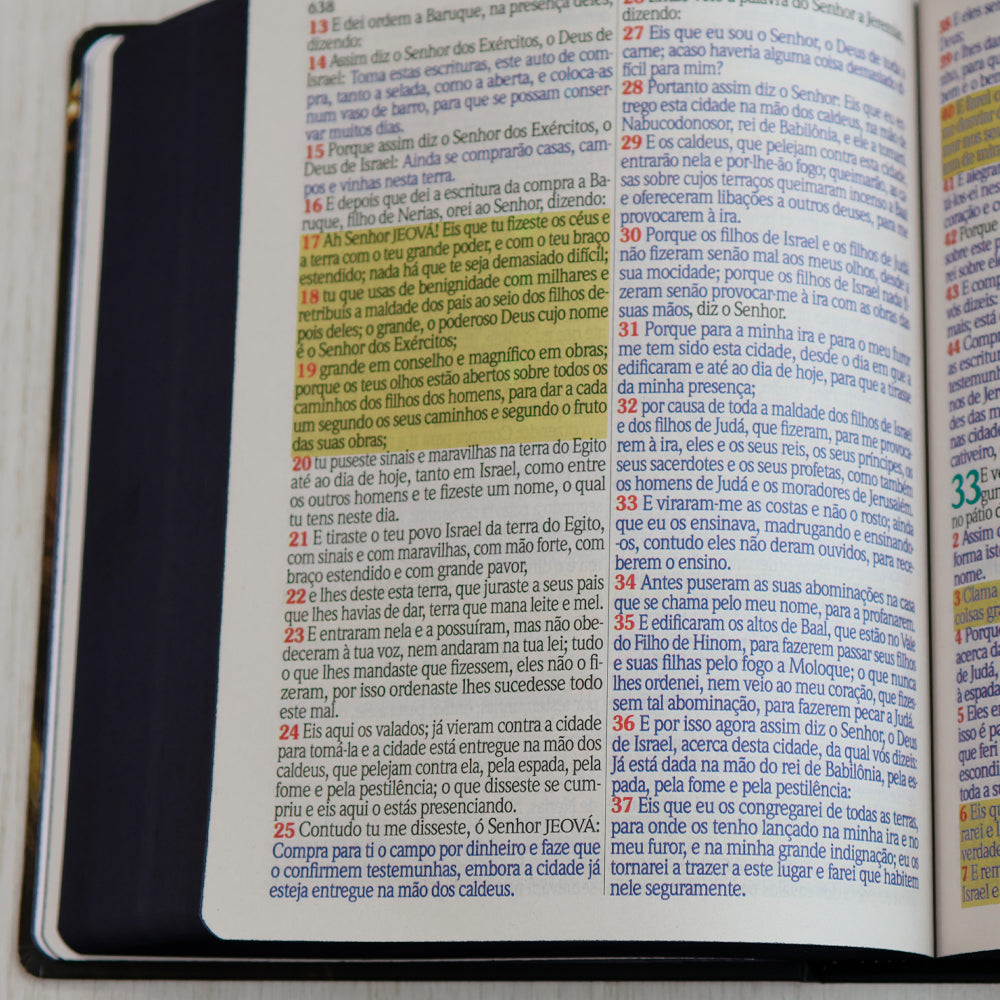 638
13 E dei ordem a Baruque, na presença deles,
dizendo:
14 Assim diz o Senhor dos Exércitos, o Deus de
Israel: Toma estas escrituras, este auto de com-
pra, tanto a selada, como a aberta, e coloca-as
num vaso de barro, para que se possam conser-
var muitos dias.
15 Porque assim diz o Senhor dos Exércitos, o
Deus de Israel: Ainda se comprarão casas, cam-
pos e vinhas nesta terra.
16 E depois que dei a escritura da compra a Ba-
ruque, filho de Nerias, orei ao Senhor, dizendo:
17 Ah Senhor JEOVÁ! Eis que tu fizeste os céus e
a terra com o teu grande poder, e com o teu braço
estendido; nada há que te seja demasiado difícil;
18 tu que usas de benignidade com milhares e
retribuis a maldade dos pais ao seio dos filhos de-
pois deles; o grande, o poderoso Deus cujo nome
é o Senhor dos Exércitos;
19 grande em conselho e magnífico em obras;
porque os teus olhos estão abertos sobre todos os
caminhos dos filhos dos homens, para dar a cada
um segundo os seus caminhos e segundo o fruto
das suas obras;
20 tu puseste sinais e maravilhas na terra do Egito
até ao dia de hoje, tanto em Israel, como entre
os outros homens e te fizeste um nome, o qual
tu tens neste dia.
21 E tiraste o teu povo Israel da terra do Egito,
com sinais e com maravilhas, com mão forte, com
braço estendido e com grande pavor,
22 e lhes deste esta terra, que juraste a seus pais
que lhes havias de dar, terra que mana leite e mel.
23 E entraram nela e a possuíram, mas não obe-
deceram à tua voz, nem andaram na tua lei; tudo
o que lhes mandaste que fizessem, eles não o fi-
zeram, por isso ordenaste lhes sucedesse todo
este mal.
24 Eis aqui os valados; já vieram contra a cidade
para tomá-la e a cidade está entregue na mão dos
caldeus, que pelejam contra ela, pela espada, pela
fome e pela pestilência; o que disseste se cum-
priu e eis aqui o estás presenciando.
25 Contudo tu me disseste, ó Senhor JEOVÁ:
Compra para ti o campo por dinheiro e faze que
o confirmem testemunhas, embora a cidade já
esteja entregue na mão dos caldeus.
a palavra do Senhor a Jeremias,
dizendo:
27 Eis que eu sou o Senhor, o Deus de toda a
carne; acaso haveria alguma coisa demasiado di-
fícil para mim?
28 Portanto assim diz o Senhor: Eis que eu en-
trego esta cidade na mão dos caldeus, na mão de
Nabucodonosor, rei de Babilônia, e ele a tomará.
29 E os caldeus, que pelejam contra esta cidade,
entrarão nela e por-lhe-ão fogo; queimarão, as ca-
sas sobre cujos terraços queimaram incenso a Baal
e ofereceram libações a outros deuses, para me
provocarem à ira.
30 Porque os filhos de Israel e os filhos de Judá
não fizeram senão mal aos meus olhos, desde a
sua mocidade; porque os filhos de Israel nada fi-
zeram senão provocar-me à ira com as obras das
suas mãos, diz o Senhor.
31 Porque para a minha ira e para o meu furor
me tem sido esta cidade, desde o dia em que a
edificaram e até ao dia de hoje, para que a tirasse
da minha presença;
32 por causa de toda a maldade dos filhos de Israel
e dos filhos de Judá, que fizeram, para me provoca-
rem à ira, eles e os seus reis, os seus príncipes, os
seus sacerdotes e os seus profetas, como também
os homens de Judá e os moradores de Jerusalém.
33 E viraram-me as costas e não o rosto; ainda
que eu os ensinava, madrugando e ensinando-
-os, contudo eles não deram ouvidos, para rece-
berem o ensino.
34 Antes puseram as suas abominações na casa
que se chama pelo meu nome, para a profanarem.
35 E edificaram os altos de Baal, que estão no Vale
do Filho de Hinom, para fazerem passar seus filhos
e suas filhas pelo fogo a Moloque; o que nunca
lhes ordenei, nem veio ao meu coração, que fizes-
sem tal abominação, para fazerem pecar a Judá.
36 E por isso agora assim diz o Senhor, o Deus
de Israel, acerca desta cidade, da qual vós dizeis:
Já está dada na mão do rei de Babilônia, pela es-
pada, pela fome e pela pestilência:
37 Eis que eu os congregarei de todas as terras,
para onde os tenho lançado na minha ira e no
meu furor, e na minha grande indignação; eu os
tornarei a trazer a este lugar e farei que habitem
nele seguramente.
38 E eles
Deus;
39 e lhes
40 E farei
41 E alegra
coração e
42 Porque
43 E
vós dizeis:
mais; está
44
as escritu
testemunh
nos de Jer
des das m
nas cidade
cativeiro,
33 E v
no pátio d
2 Assim
forma ist
nome.
3 Clama
coisas gr
4 Porqu
acerca da
de Judá,
à espada
5 Eles e
isso é pa
que feri
escondi
toda a su
6 Eis q
rarei e
verdade
7 E rem
Israel e